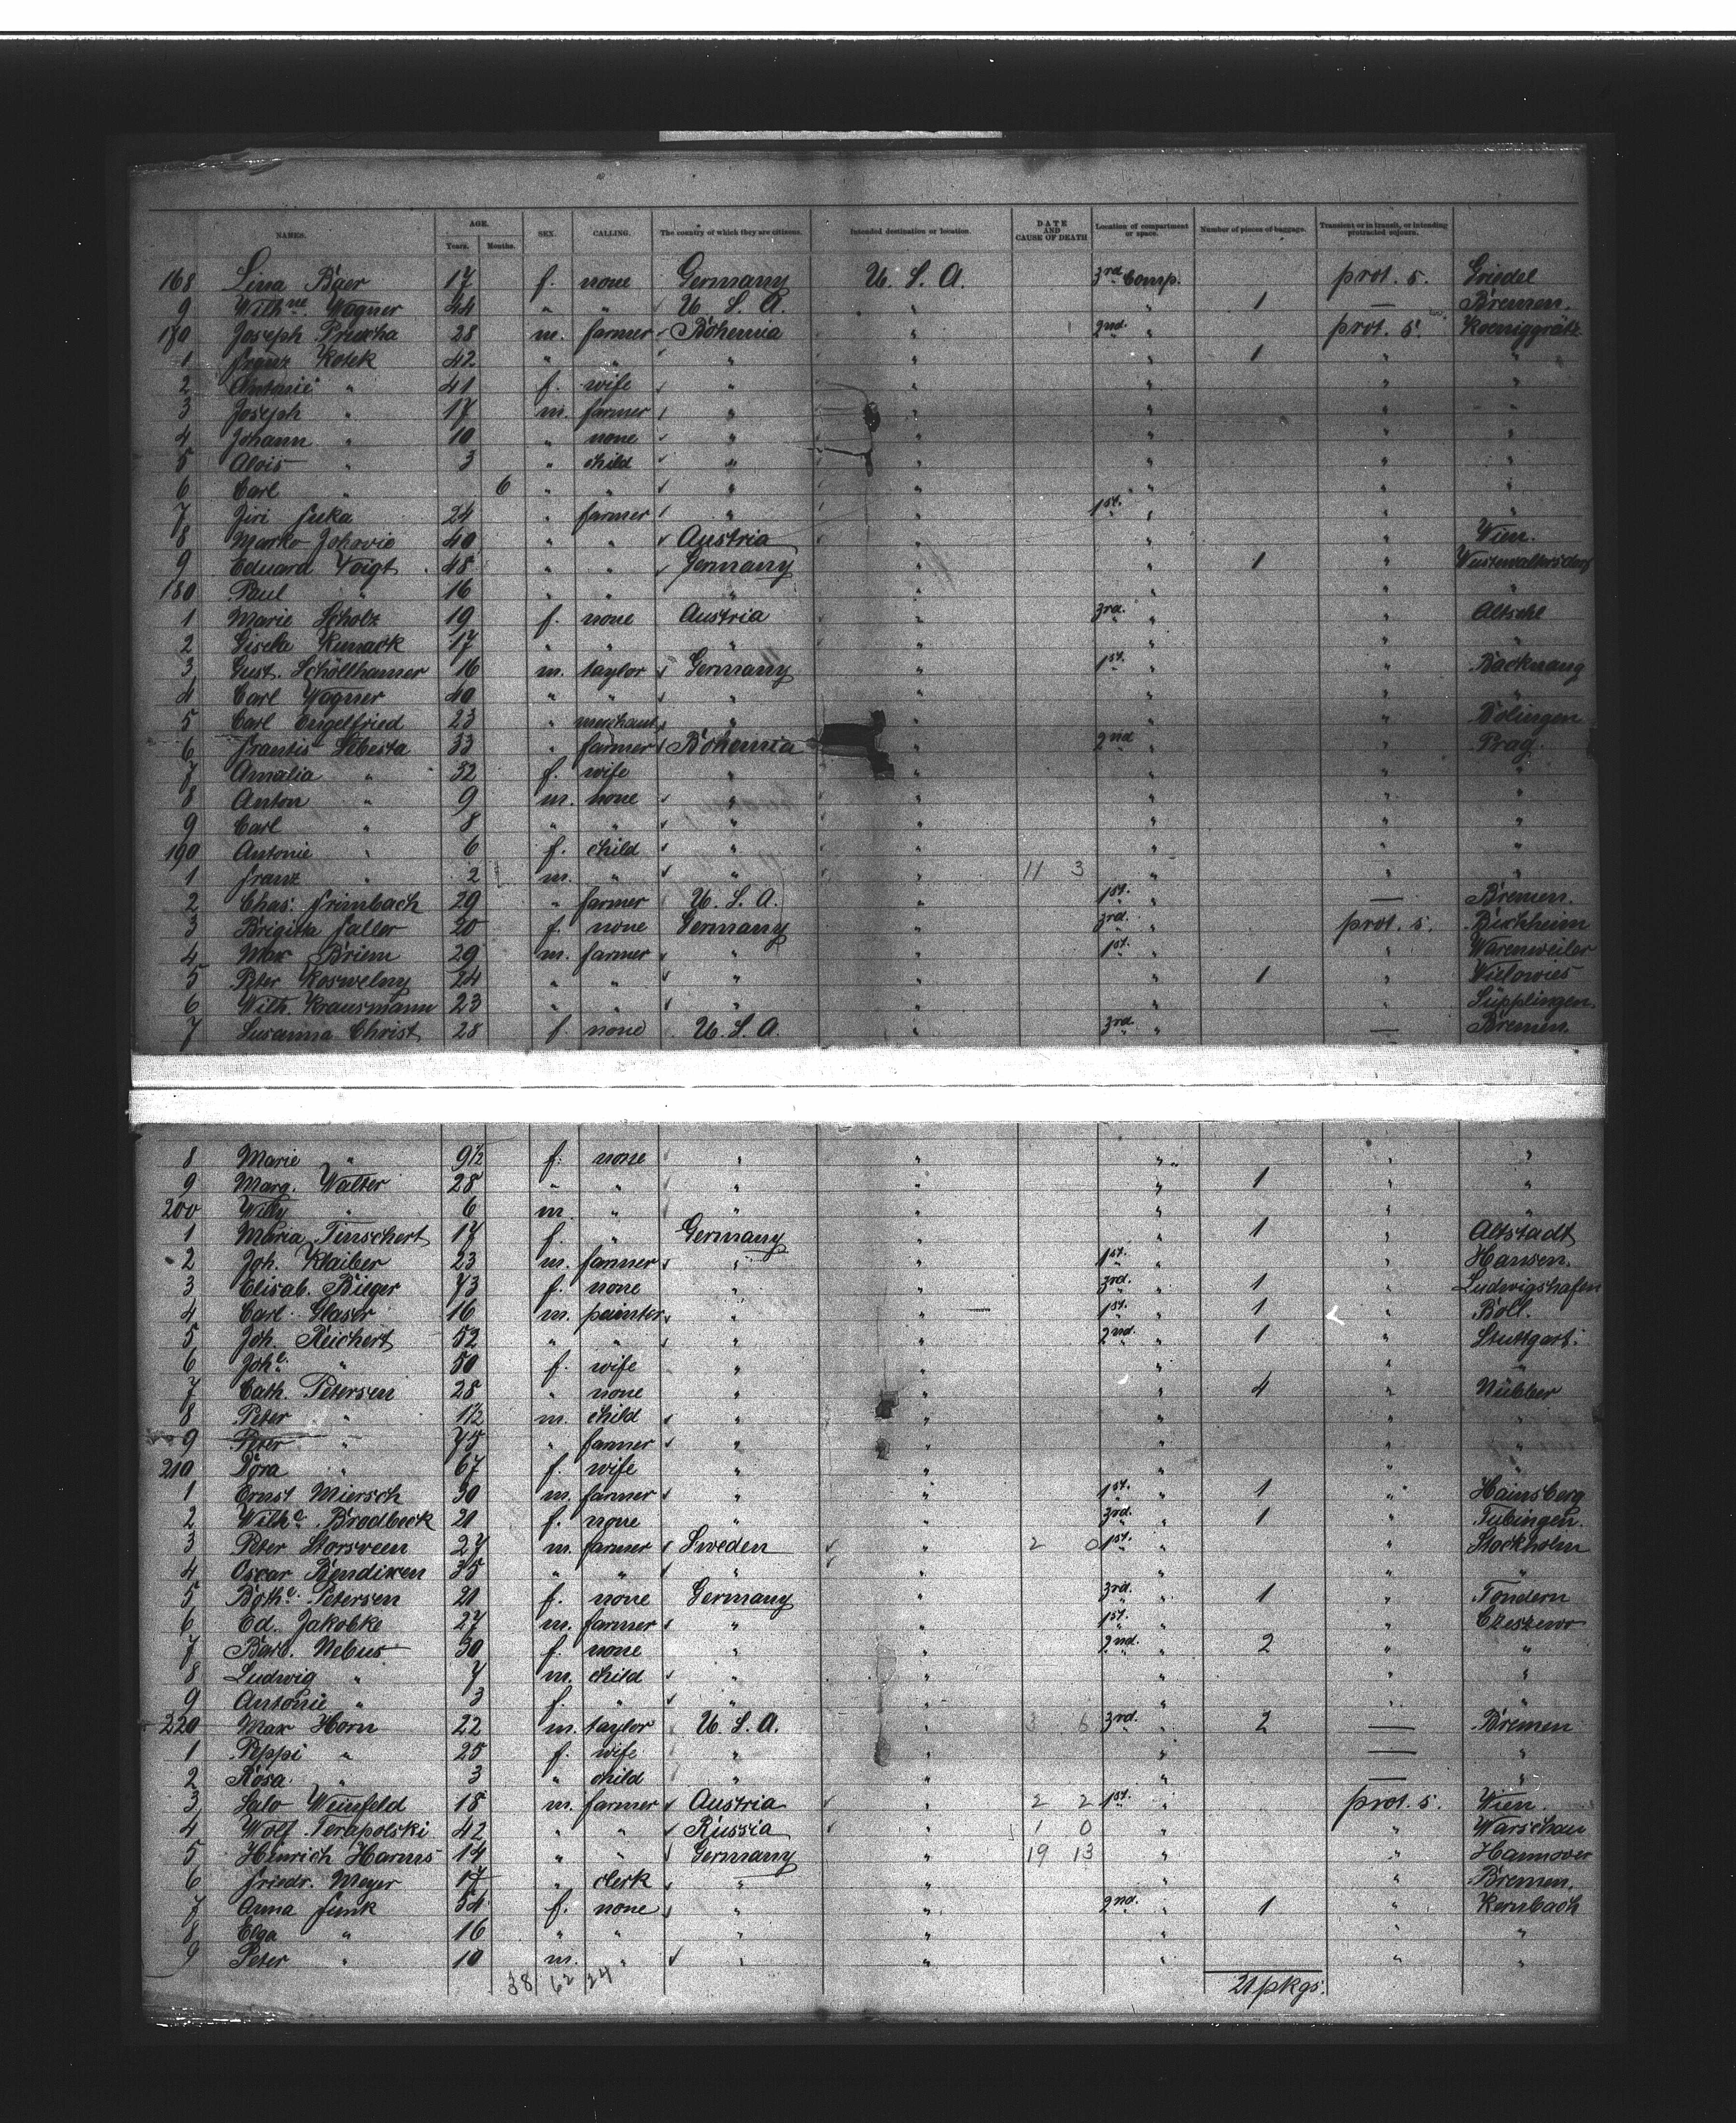 NAMES. AGE. Years. Months. SEX. CALLING. The country of which they are citizens. Intended destination or location. DATE AND CAUSE OF DEATH Location of compartment or space. Number of pieces of baggage. Transient or in transit, or intending protracted sojourn.
168 Lina Baer 17 f. none Germany U. S. A. 3rd Comp. prot. s. Griedel
9 Wilhne Wagner 44 " " U. S. A. " " 1 — Bremen.
170 Joseph 28 m. farmer Bohemia " 2nd " prot. s. Koeniggrätz
1 Franz Kotek 42 " " " " " 1 " "
2 Antonie " 41 f. wife " " " " "
3 Joseph " 17 m. farmer " " " " "
4 Johann " 10 " none " " " " "
5 Alois " 3 " child " " " " "
6 Carl " 6 " " " " " " "
7 Jiri 24 " farmer " " 1st " " "
8 Marko Johovic 40 " " Austria " " " Wien.
9 Eduard Voigt 48 " " Germany " " 1 " Wüstewaltersdorf
180 Paul " 16 " " " " " " "
1 Marie Scholz 19 f. none Austria " 3rd " " Altsehl
2 Gisela Kunack 17 " " " " " " "
3 Gust. Schöllhamer 16 m. taylor Germany " 1st " " Backnang
4 Carl Wagner 40 " " " " " " "
5 Carl Engelfried 23 " merchant " " " "
6 Frantis Sebesta 33 " farmer Bohemia " 2nd " " Prag.
7 Amalia " 32 f. wife " " " " "
8 Anton " 9 m. none " " " " "
9 Carl " 8 " " " " " " "
190 Antonie " 6 f. child " " " " "
1 Franz " 2 m. " " " 11 3 " " "
2 Chas. Frimbach 29 " farmer U. S. A. " 1st " — Bremen.
3 Brigitta Faller 20 f. none Germany " 3rd " prot. s. Birkheim
4 Max Briem 29 m. farmer " " 1st " " Warenweiler
5 Peter Koswelny 24 " " " " " 1 " Wielowies
6 Wilh. Krausmann 23 " " " " " " Süpplingen.
7 Susanna Christ 28 f. none U. S. A. " 3rd " — Bremen.
8 Marie " 9½ f. none " " " " "
9 Marg. Walter 28 " " " " " 1 " "
200 Willy " 6 m. " " " " " "
1 Maria Tinschert 17 f. " Germany " " 1 " Altstadt
2 Joh. Klaiber 23 m. farmer " " 1st " " Hausen.
3 Elisab. Bieger 73 f. none " " 3rd " 1 " Ludwigshafen
4 Carl Glaser 16 m. painter " " 1st " 1 " Boll.
5 Joh. Reichert 52 " " " " 2nd " 1 " Stuttgart.
6 Johe " 50 f. wife " " " " "
7 Cath. Petersen 28 " none " " " 4 " Nübber
8 Peter " 1½ m. child " " " " "
9 Peter " 75 " farmer " " " " "
210 Dora " 67 f. wife " " " " "
1 Ernst Miersch 30 m. farmer " " 1st " 1 " Hainsberg
2 Wilhe Brodbeck 21 f. none " " 3rd " 1 " Tübingen.
3 Peter Storsveen 27 m. farmer Sweden " 2 0 1st " " Stockholm
4 Oscar Bendixen 35 " " " " " " "
5 Bothe Petersen 21 f. none Germany " 3rd " 1 " Tondern
6 Ed. Jakobke 27 m. farmer " " 1st " " Czeszewo
7 Barb. Nebus 30 f. none " " 2nd " 2 " "
8 Ludwig " 7 m. child " " " " "
9 Antonie " 3 f. " " " " " "
220 Max Horn 22 m. taylor U. S. A. " 3 6 3rd " 2 — Bremen
1 Peppi " 25 f. wife " " " — "
2 Rosa " 3 " child " " " — "
3 Salo Weinfeld 18 m. farmer Austria " 2 2 1st " prot. s. Wien.
4 Wolf Terapolski 42 " " Russia " 1 0 " " Warschau
5 Heinrich Harms 14 " " Germany " 19 13 " " Hannover
6 Friedr. Meyer 17 " clerk " " " " Bremen.
7 Anna Funk 54 f. none " " 2nd " 1 " Kernbach
8 Elga " 16 " " " " " " "
9 Peter " 10 m. " " " " " "
38 62 24 21 pkgs.